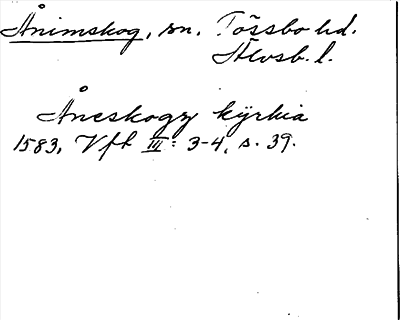 Ånimskog, sn. Tössbo hd.
Älvsb. l.
Åneskogz kÿrkia
1583, Vft III: 3-4, s. 39.